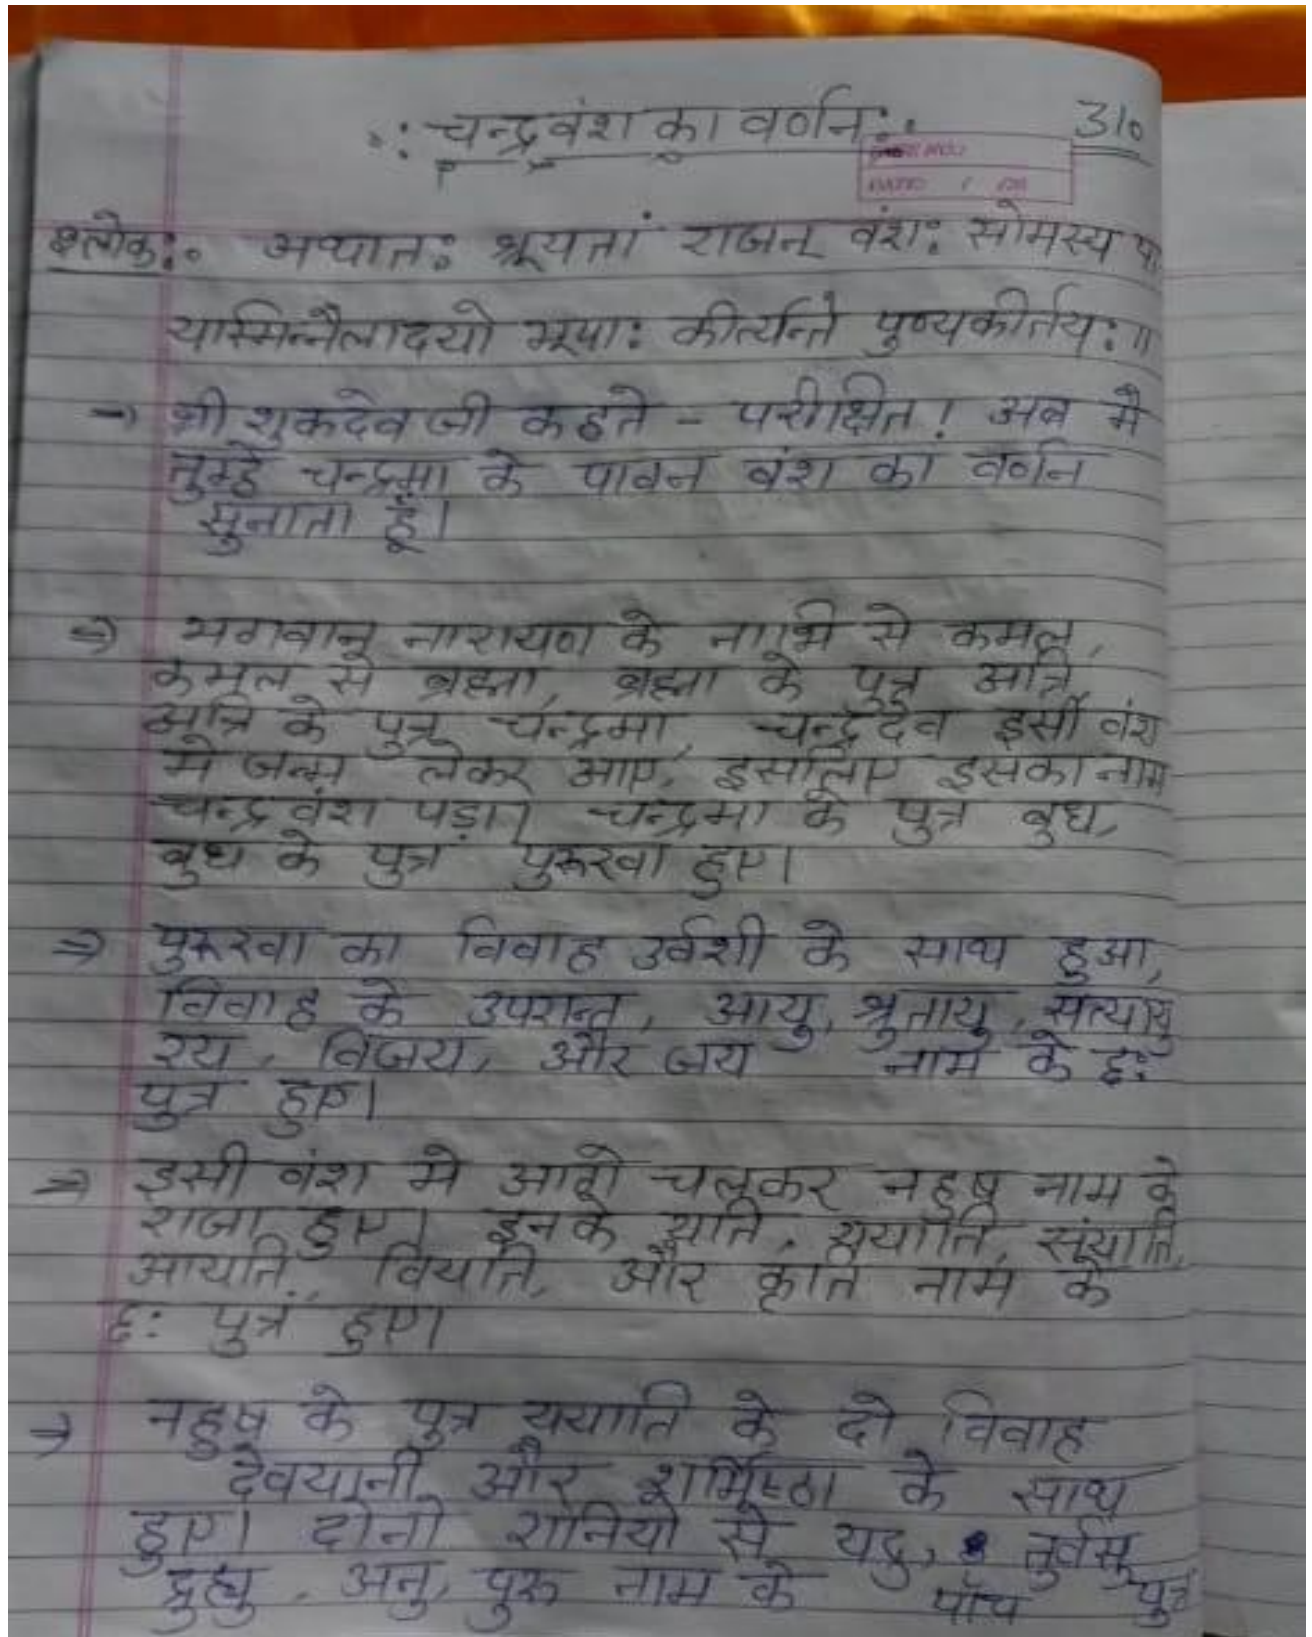 :: चन्द्रवंश का वर्णन ::
310
श्लोक:. अथातः श्रूयतां राजन् वंशः सोमस्य पा
यास्मिन्नैलादयो भूपाः कीर्त्यन्ते पुण्यकीर्तयः॥
→ श्री शुकदेव जी कहते - परीक्षित! अब मै
तुम्हे चन्द्रमा के पावन वंश का वर्णन
सुनाता हूँ।
⇒ भगवान् नारायण के नाभि से कमल,
कमल से ब्रह्मा, ब्रह्मा के पुत्र अत्रि,
अत्रि के पुत्र चन्द्रमा, चन्द्रदेव इसी वंश
मे जन्म लेकर आए, इसलिए इसका नाम
चन्द्रवंश पड़ा। चन्द्रमा के पुत्र बुध,
बुध के पुत्र पुरूरवा हुए।
⇒ पुरूरवा का विवाह उर्वशी के साथ हुआ,
विवाह के उपरान्त, आयु, श्रुतायु, सत्यायु
रय, विजय, और जय नाम के छः
पुत्र हुए।
⇒ इसी वंश मे आगे चलकर नहुष नाम के
राजा हुए। इनके यति, ययाति, संयाति,
आयाति, वियाति, और कृति नाम के
छः पुत्र हुए।
→ नहुष के पुत्र ययाति के दो विवाह
देवयानी और शर्मिष्ठा के साथ
हुए। दोनो रानियो से यदु, तुर्वसु
द्रुह्यु, अनु, पुरू नाम के पाँच पुत्र